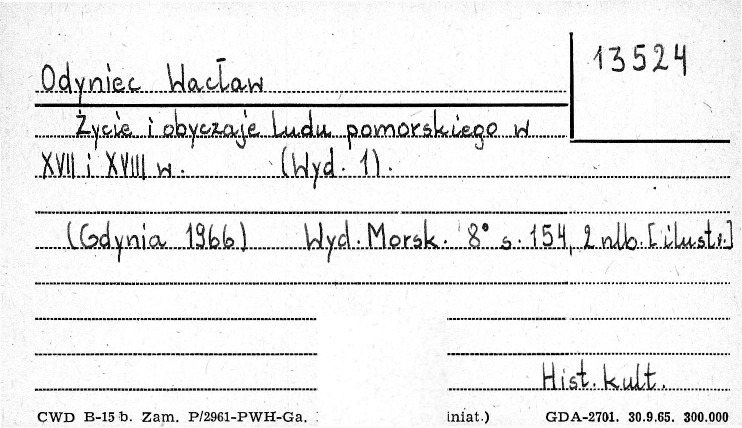 13524
Odyniec Wacław
Życie i obyczaje ludu pomorskiego w
XVII i XVIII w. (Wyd. 1).
(Gdynia 1966) Wyd. Morsk. 8° s. 154, 2 nlb. [ilustr.]
Hist. kult.
CWD B-15 b. Zam. P/2961-PWH-Ga. iniat.) GDA-2701. 30.9.65. 300.000